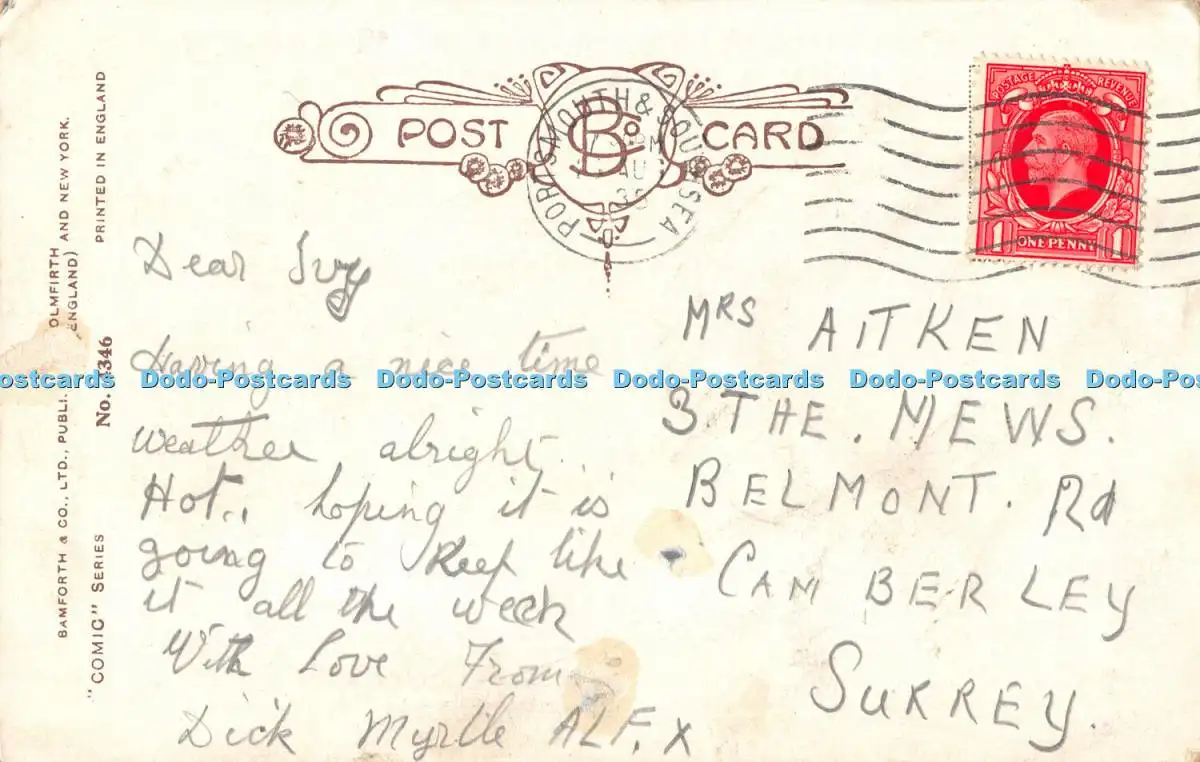 POST CARD
B Co
PORTSMOUTH & SOUTHSEA
PM
AU
POSTAGE REVENUE
1 ONE PENNY 1
BAMFORTH & CO., LTD., PUBLI. OLMFIRTH
ENGLAND) AND NEW YORK.
"COMIC" SERIES No. 346 PRINTED IN ENGLAND
Dear Ivy
Having a nice time
weather alright.
Hot., hoping it is
going to keep like
it all the week
With Love From
Dick Myrtle ALF. X
MRS AITKEN
3. THE. MEWS.
BELMONT. Rd
CAMBERLEY
SURREY.
Dodo-Postcards Dodo-Postcards Dodo-Postcards Dodo-Postcards Dodo-Postcards Dodo-Postcards